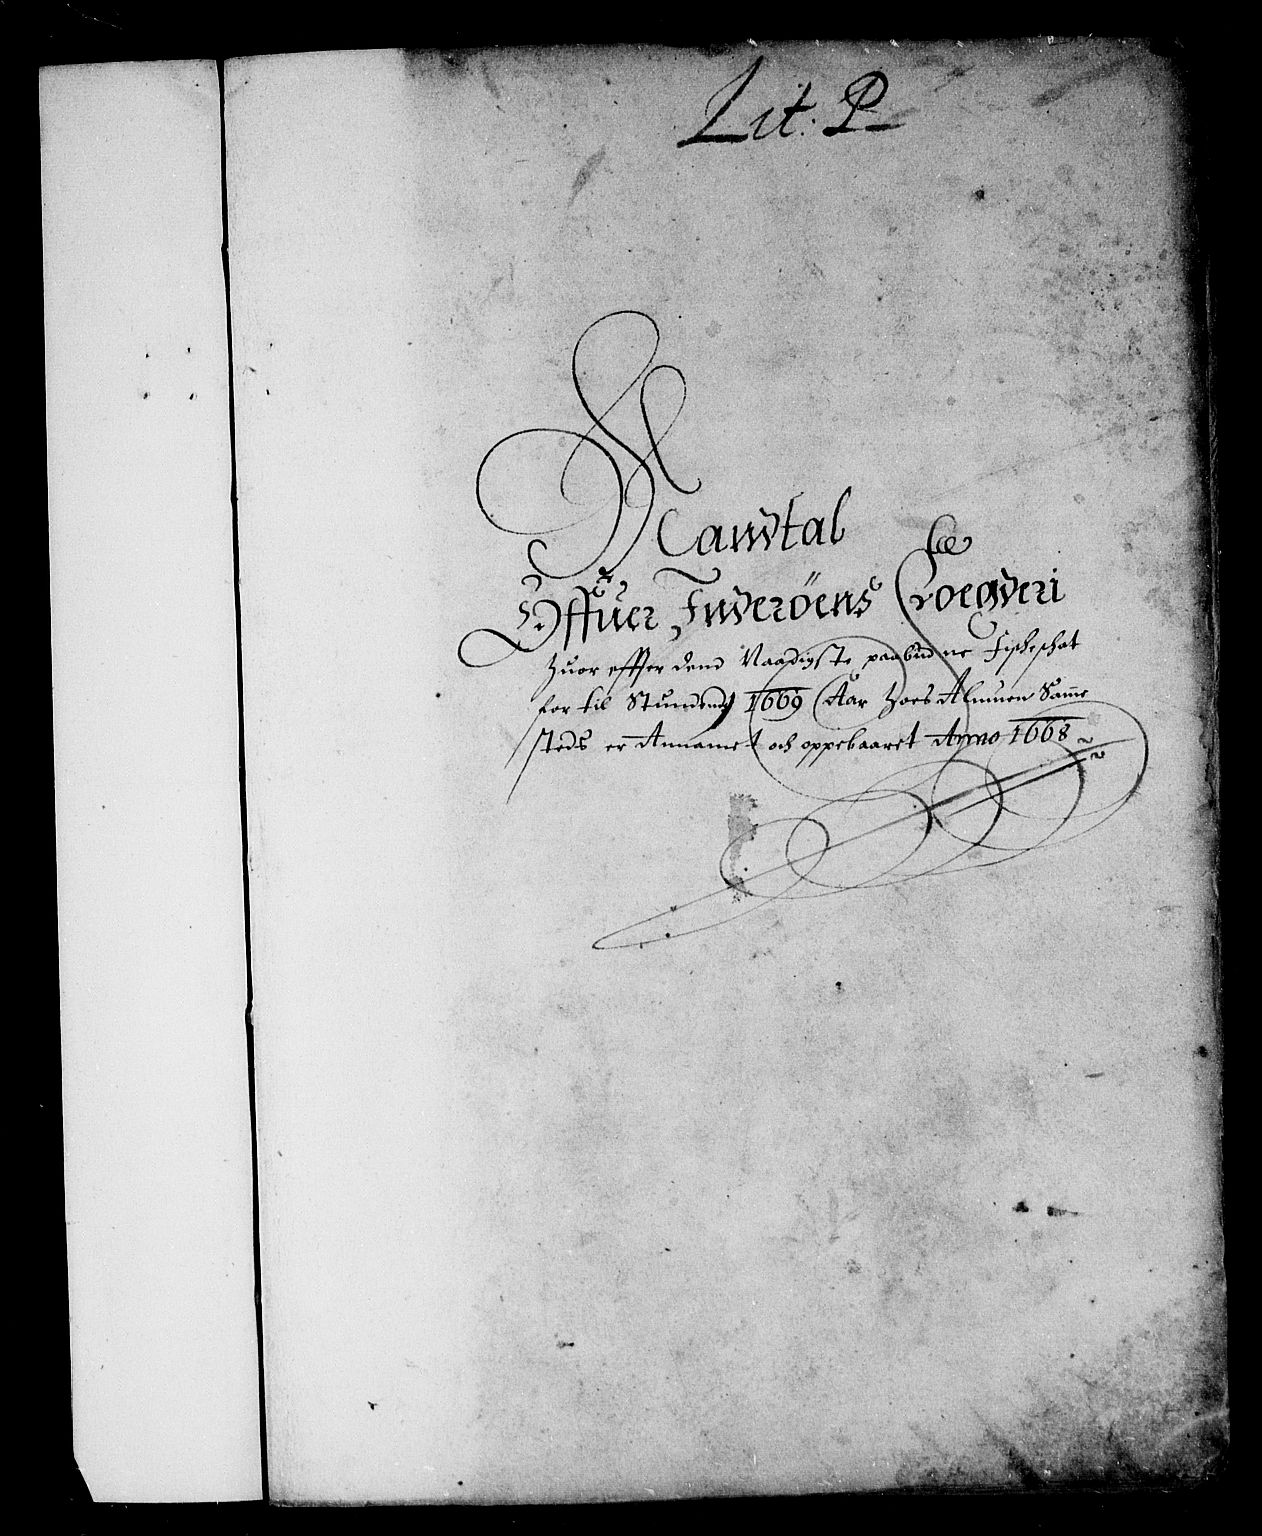 Lit: P
Mandtal
Offuer Inderöens Froegderi
huor effter dend Naadigste paabudne Fischeschat
for til Stundende 1669 Aar hoes Almuen Samme
steds er Annamet och oppebaaret Anno 1668